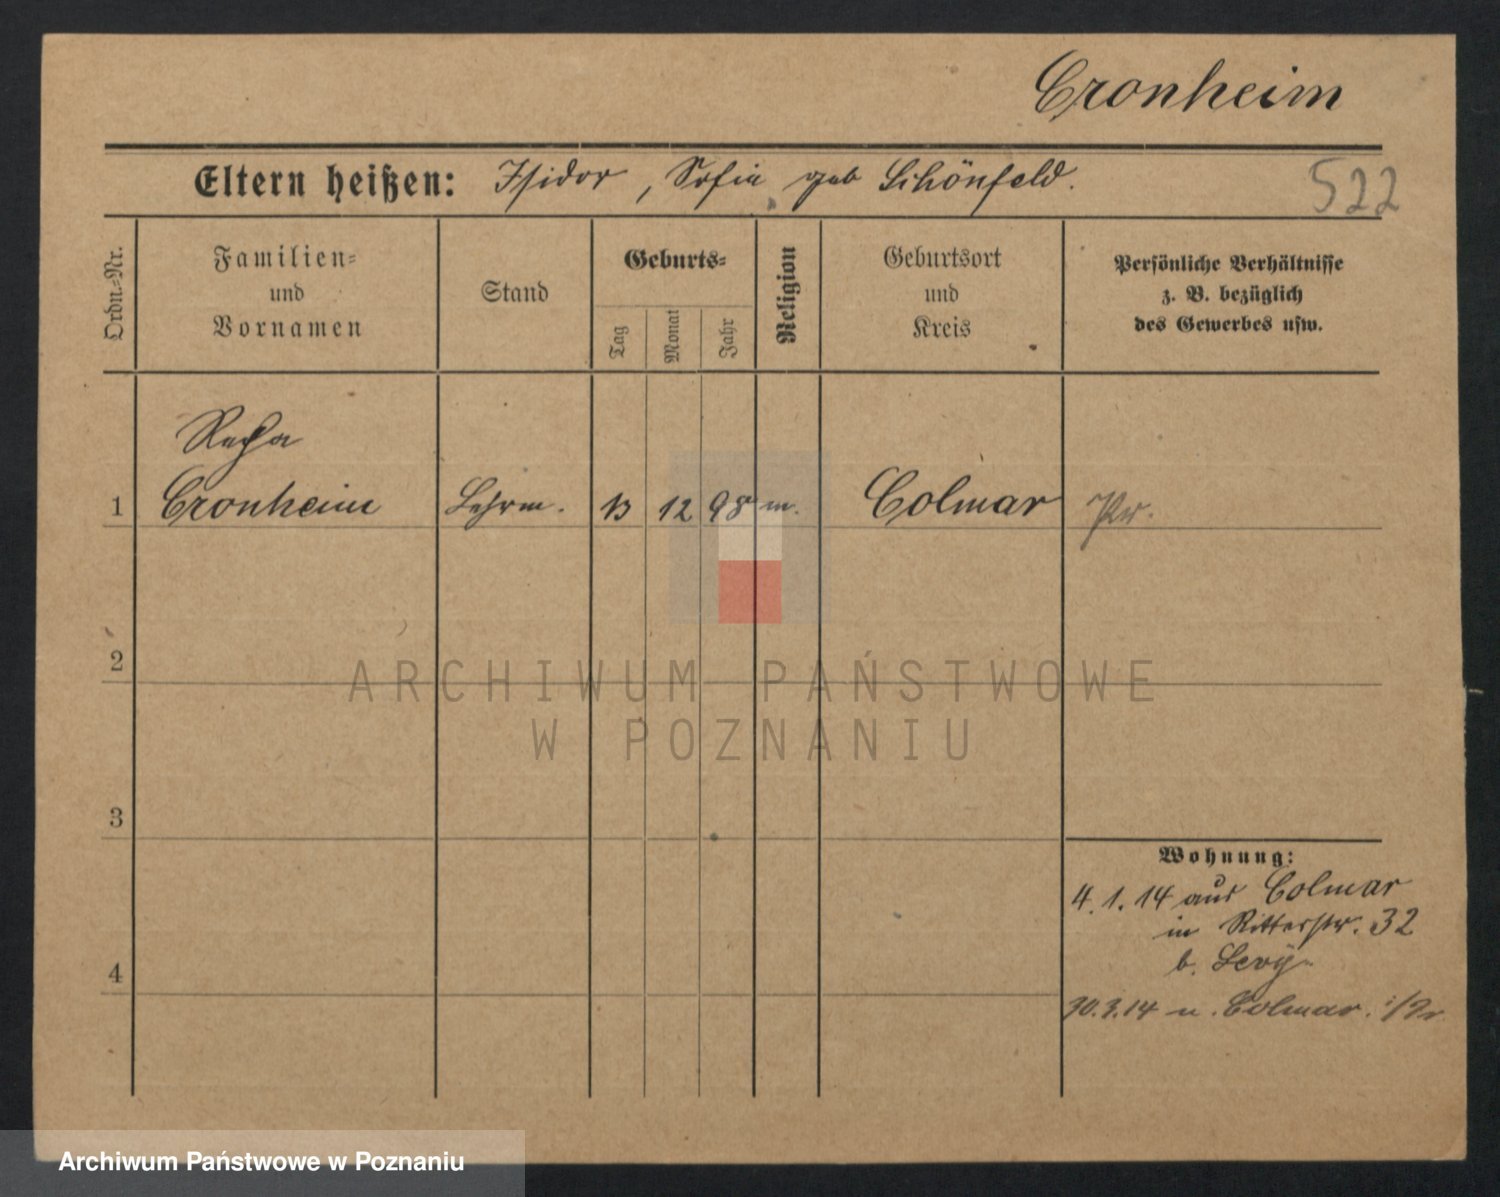 Cronheim
Eltern heißen: Isidor, Sofie geb Schönfeld.
522
Ordn.=Nr.
Familien=
und
Vornamen
Stand
Geburts=
Tag
Monat
Jahr
Religion
Geburtsort
und
Kreis
Persönliche Verhältnisse
z. B. bezüglich
des Gewerbes usw.
Recha
1 Cronheim 13 12 98 m. Colmar Pr.
2
3
4
Wohnung:
4. 1. 14 aus Colmar
in Ritterstr. 32
b. Levy
30.3.14 n. Colmar. i/Pr
ARCHIWUM PAŃSTWOWE
W POZNANIU
Archiwum Państwowe w Poznaniu